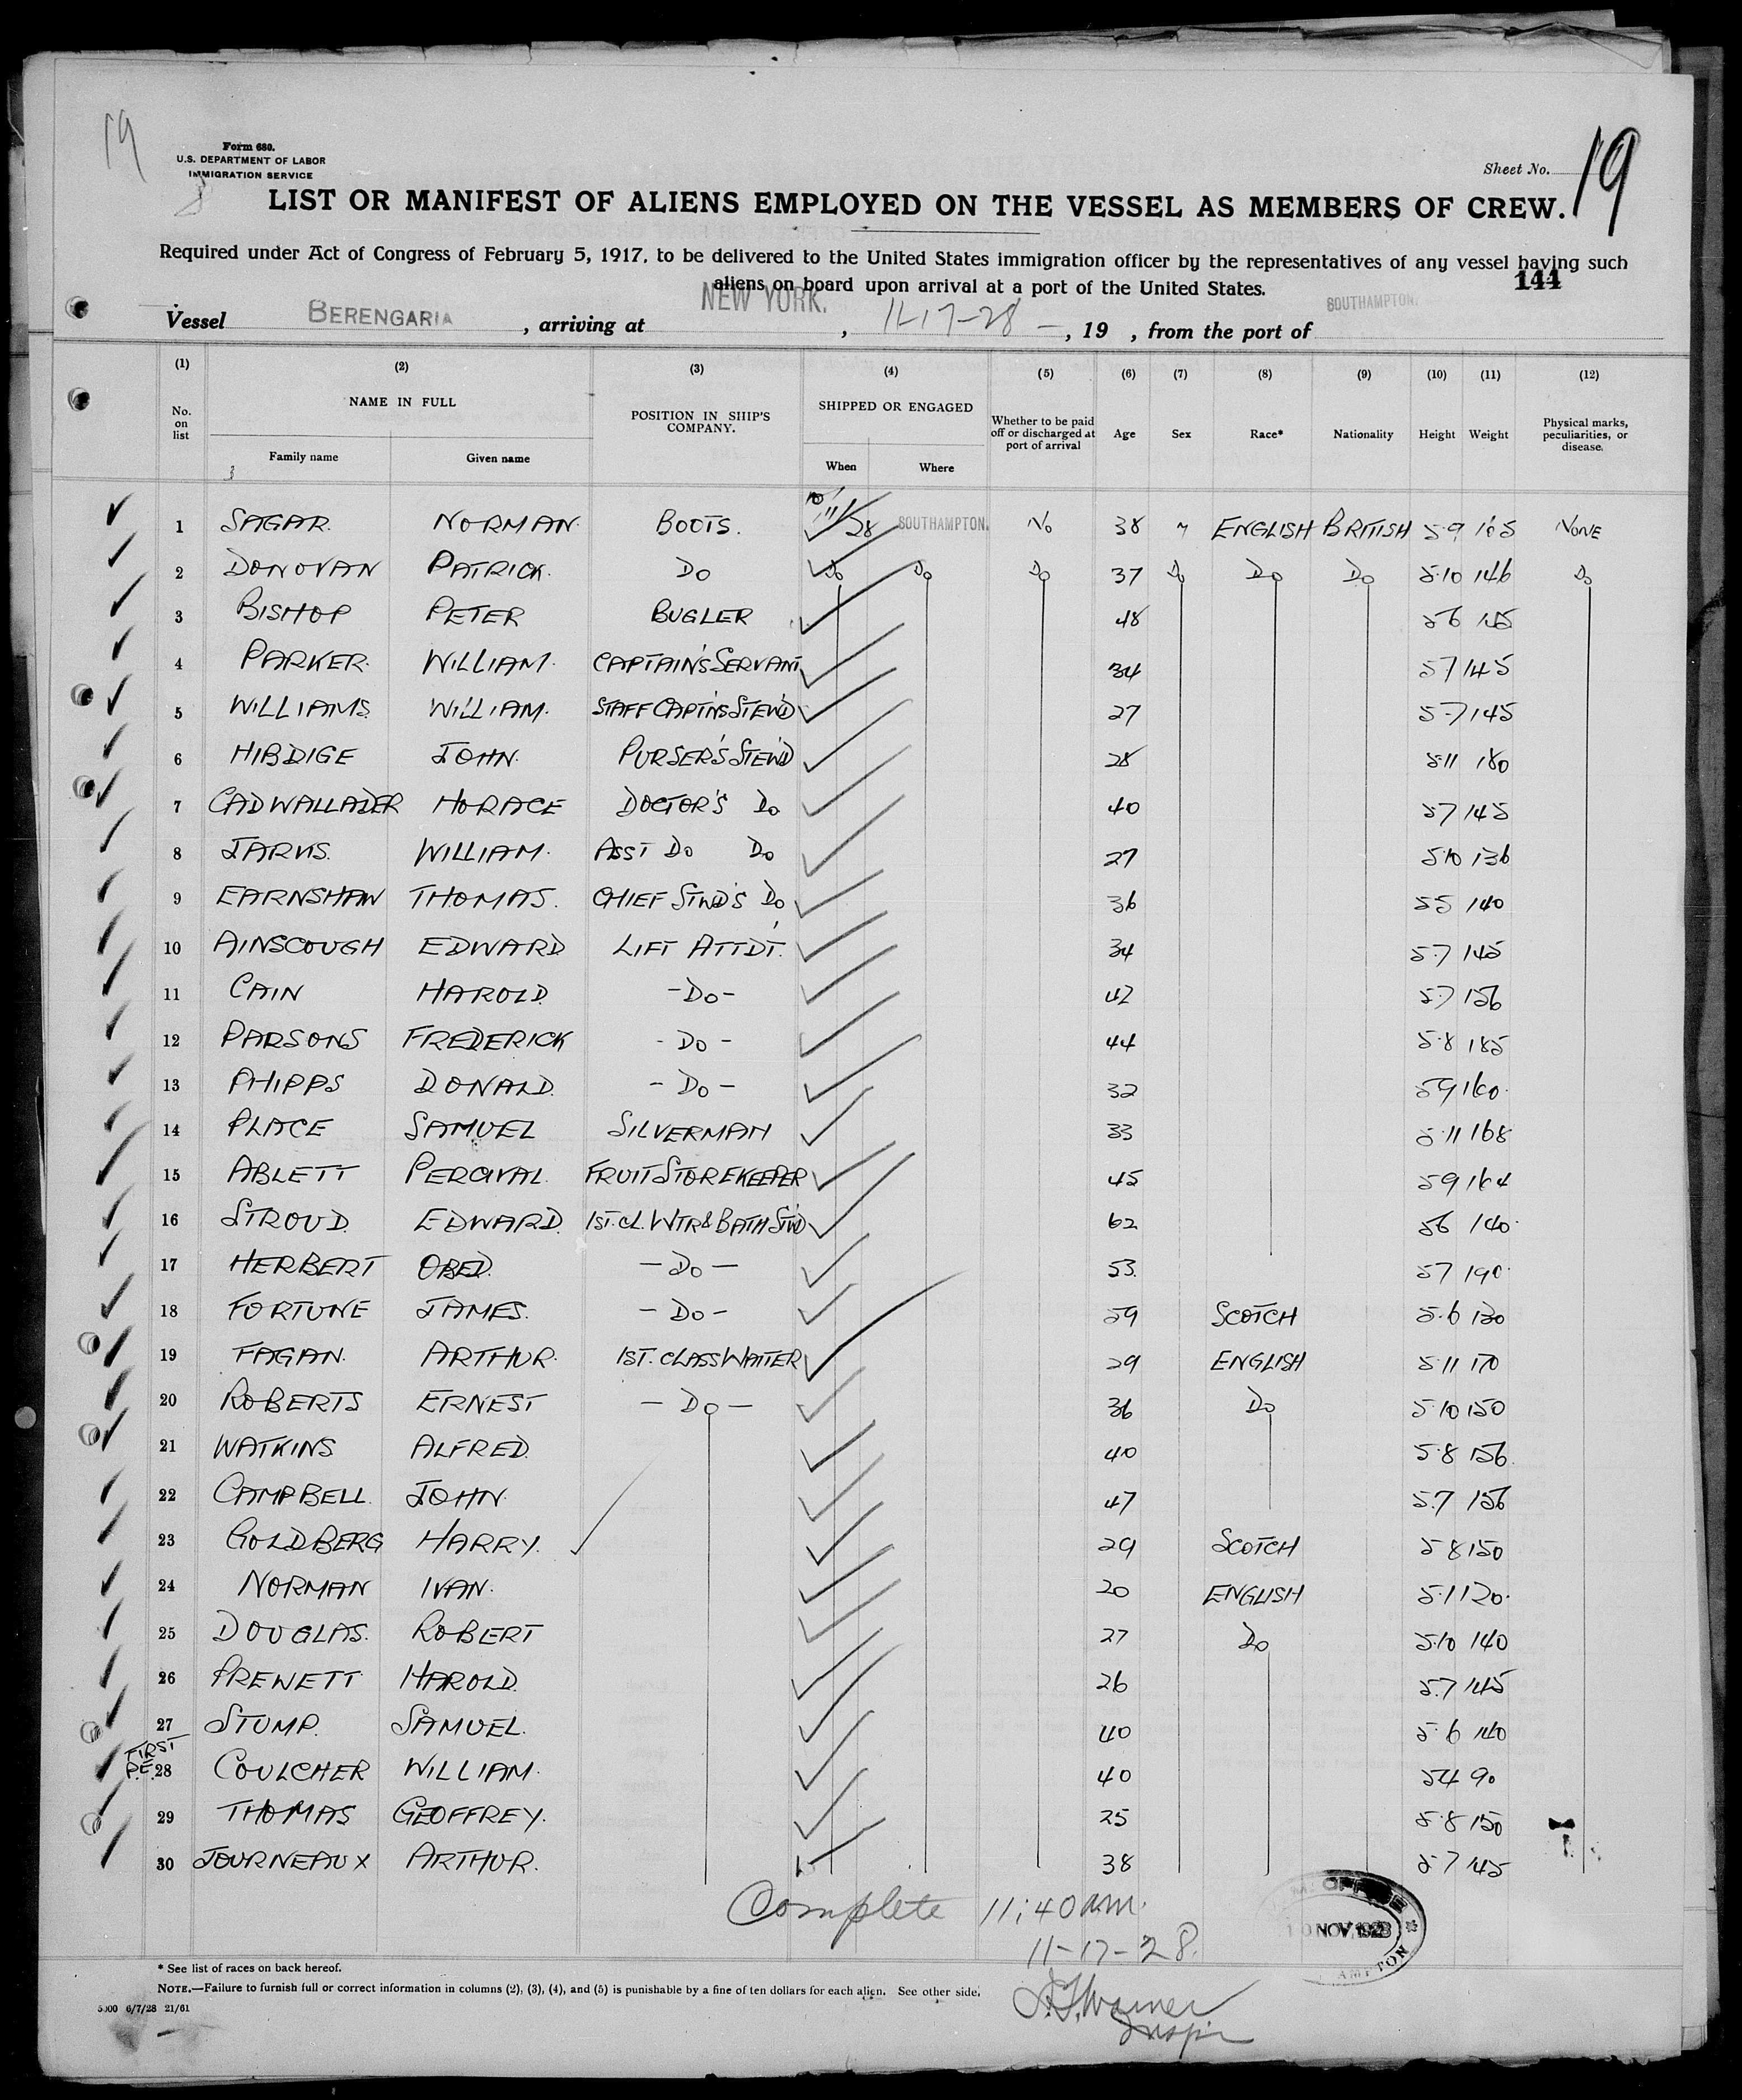 19
Form 680.
U.S. DEPARTMENT OF LABOR
IMMIGRATION SERVICE
Sheet No. 19
LIST OR MANIFEST OF ALIENS EMPLOYED ON THE VESSEL AS MEMBERS OF CREW.
Required under Act of Congress of February 5, 1917, to be delivered to the United States immigration officer by the representatives of any vessel having such
aliens on board upon arrival at a port of the United States.
144
Vessel BERENGARIA, arriving at NEW YORK., 11-17-28 —, 19 , from the port of SOUTHAMPTON.
(1) (2) (3) (4) (5) (6) (7) (8) (9) (10) (11) (12)
No. on list NAME IN FULL POSITION IN SHIP'S COMPANY. SHIPPED OR ENGAGED Whether to be paid off or discharged at port of arrival Age Sex Race* Nationality Height Weight Physical marks, peculiarities, or disease.
Family name Given name When Where
1 SAGAR. NORMAN. BOOTS. 10/11/28 SOUTHAMPTON. No 38 ENGLISH BRITISH 5.9 165 NONE
2 DONOVAN PATRICK. DO Do Do Do 37 Do Do Do 5.10 146 Do
3 BISHOP PETER BUGLER 48 5 6 145
4 PARKER. WILLIAM. CAPTAIN'S SERVANT 34 5 7 145
5 WILLIAMS. WILLIAM. STAFF CAPTN'S STEW'D 27 5.7 145
6 HIBDIGE JOHN. PURSER'S STEW'D 28 5.11 180
7 CADWALLADER HORACE DOCTOR'S Do 40 5 7 145
8 JARVIS. WILLIAM. ASST Do Do 27 5.10 136
9 EARNSHAW THOMAS. CHIEF STWD'S Do 36 5 5 140
10 AINSCOUGH EDWARD LIFT ATTDT. 34 5.7 145
11 CAIN HAROLD. - Do - 42 5.7 156
12 PARSONS FREDERICK - Do - 44 5.8 185
13 PHIPPS DONALD. - Do - 32 5 9 160.
14 PLACE SAMUEL SILVERMAN 33 5.11 168
15 ABLETT PERCIVAL. FRUIT STOREKEEPER 45 5 9 164
16 STROUD. EDWARD. 1ST. CL. WTR & BATH STW'D 62 5 6 140.
17 HERBERT OBED. - Do - 53. 5 7 190.
18 FORTUNE JAMES. - Do - 29 SCOTCH 5.6 130
19 FAGAN. ARTHUR. 1ST. CLASS WAITER 29 ENGLISH 5.11 170
20 ROBERTS ERNEST - Do - 36 Do 5.10 150
21 WATKINS ALFRED. 40 5.8 156.
22 CAMPBELL. JOHN. 47 5.7 156
23 GOLDBERG HARRY. 29 SCOTCH 5 8 150
24 NORMAN IVAN. 20 ENGLISH 5.1 120.
25 DOUGLAS. ROBERT 27 Do 5.10 140
26 PREWETT HAROLD. 26 5.7 145
27 STUMP. SAMUEL. 40 5.6 140
FIRST
P.E. 28 COULCHER WILLIAM. 40 5 4 90
29 THOMAS GEOFFREY. 25 5.8 150
30 JOURNEAUX ARTHUR. 38 5.7 145
Complete 11:40 a.m.
11-17-28.
10 NOV 1928
* See list of races on back hereof.
NOTE.—Failure to furnish full or correct information in columns (2), (3), (4), and (5) is punishable by a fine of ten dollars for each alien. See other side.
5000 6/7/28 21/61